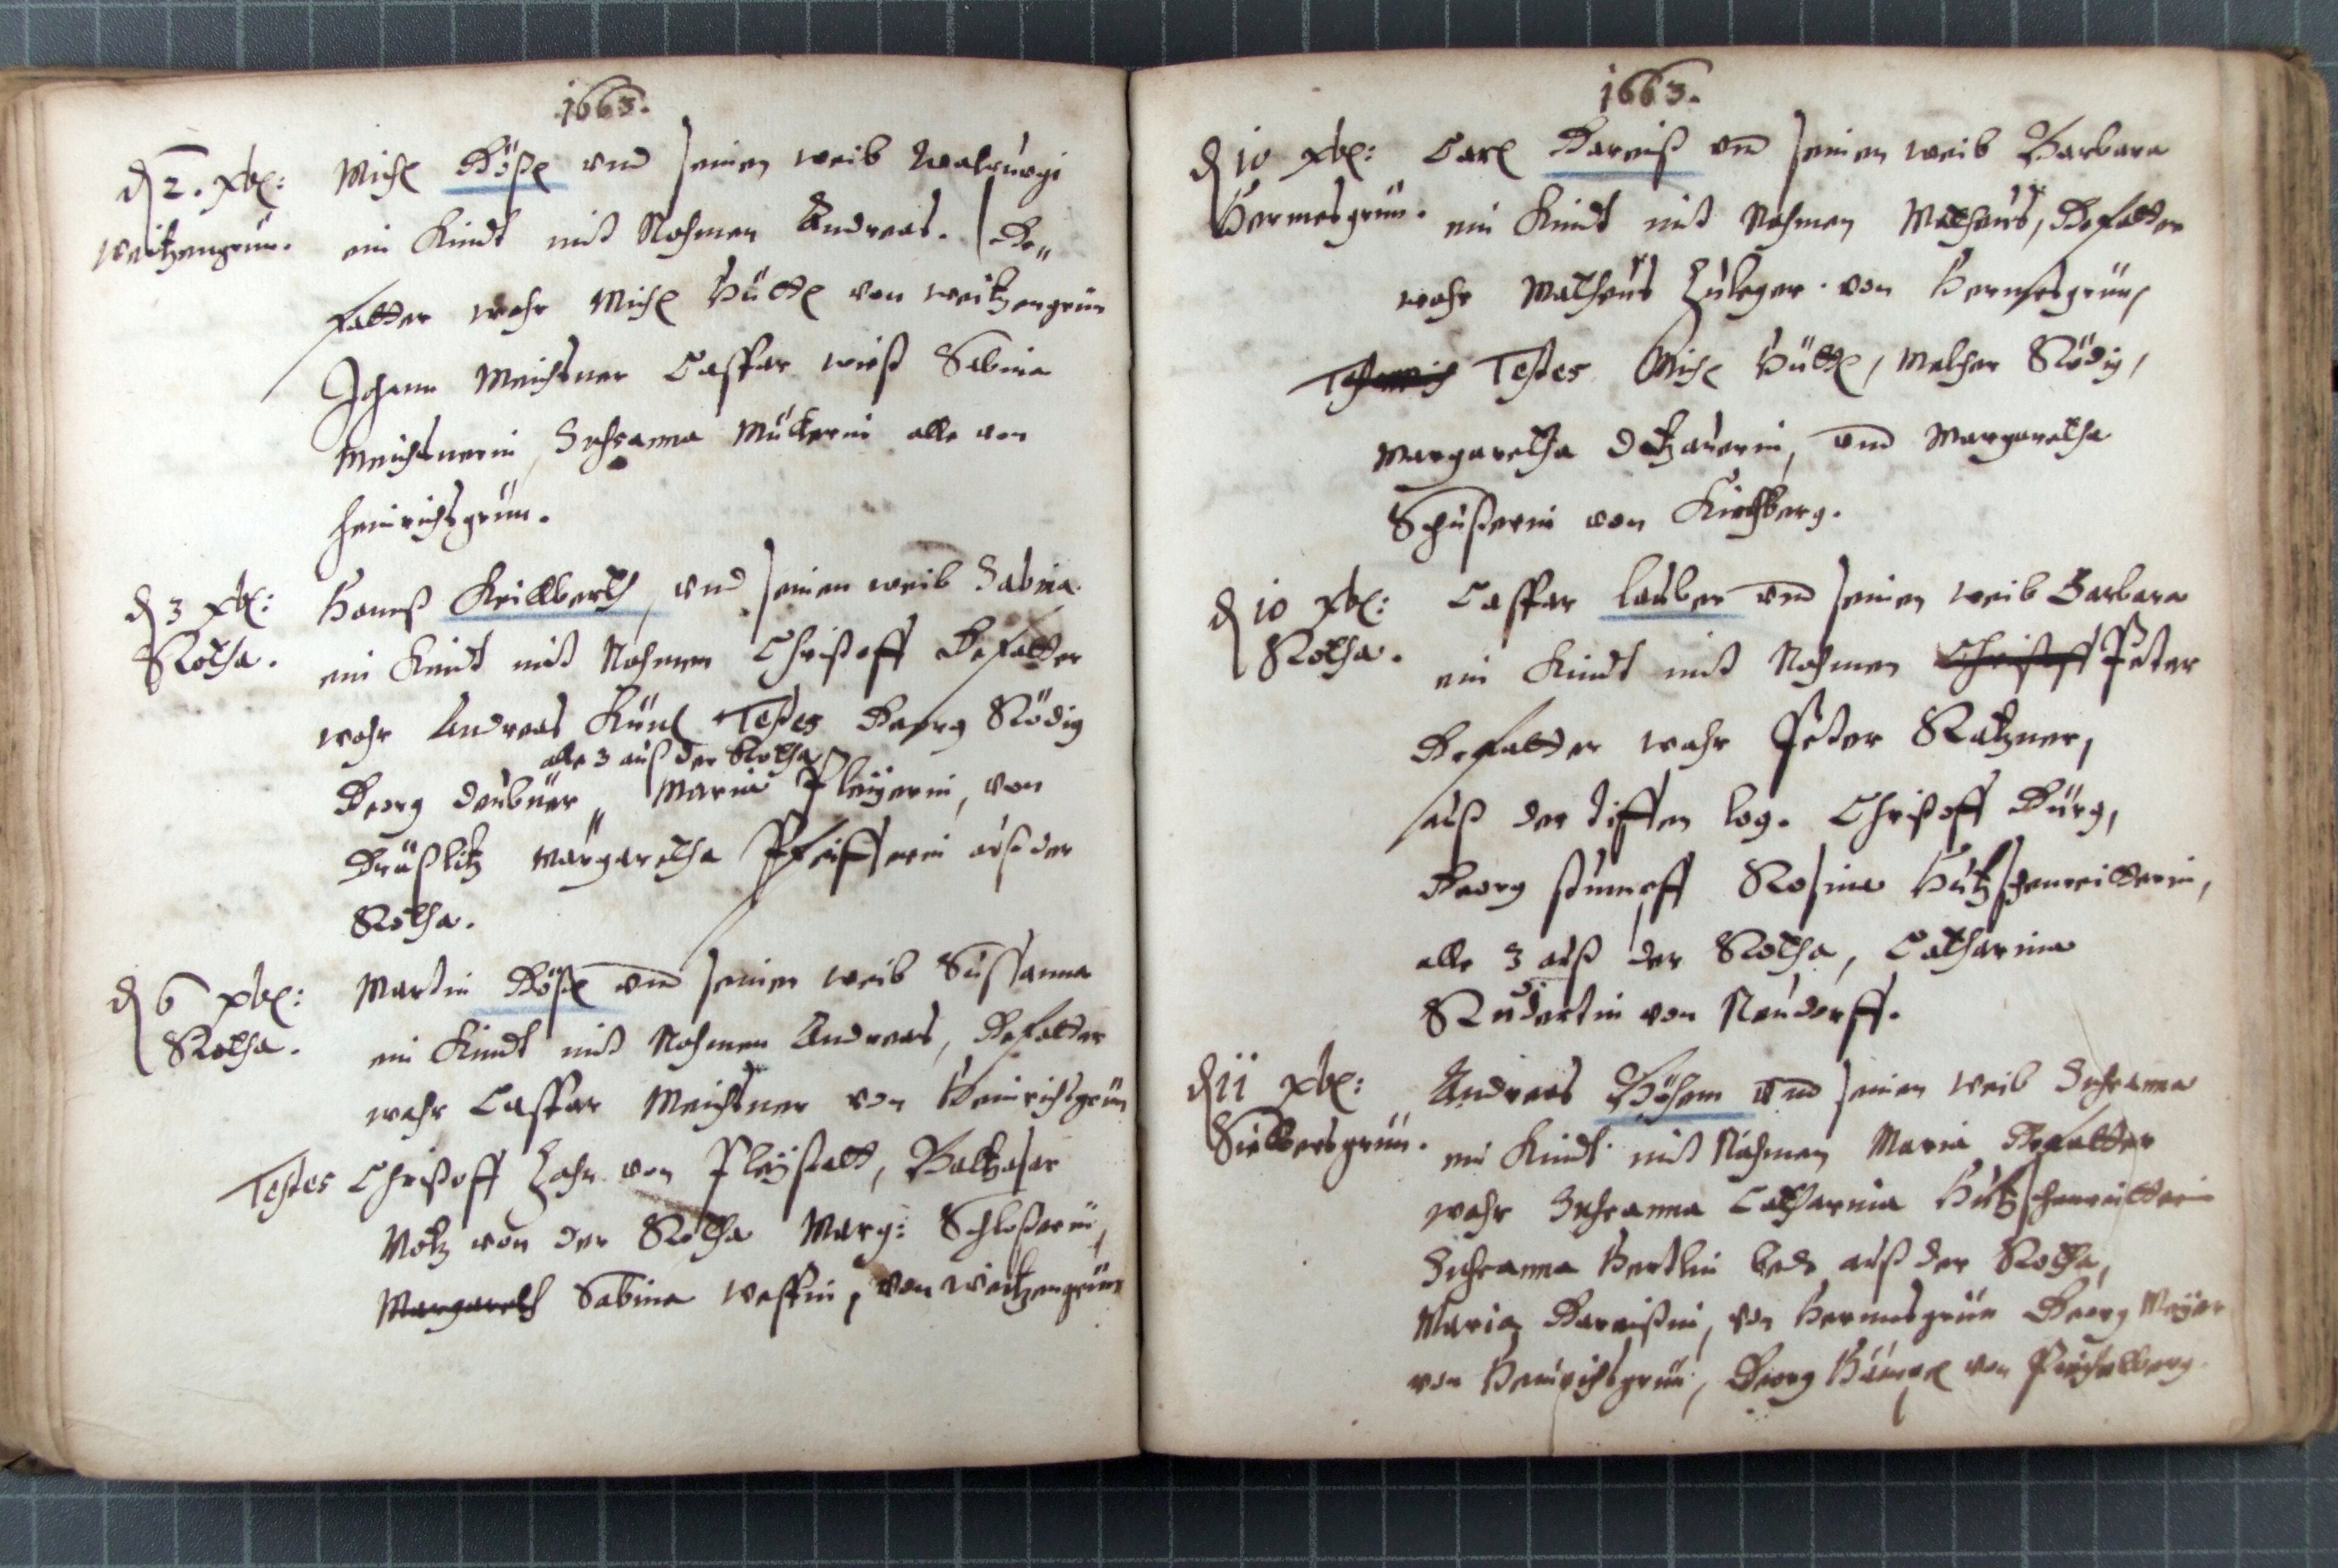 1663.
d 2. xbr:
Weitzengrün.
Michl Böhsl vnd seinen weib Walburgi
ein Kindt mitt Nahmen Andreas. Ge„
fatter wahr Michl Hüttl von weitzengrün
Johann Meichsner Casspar wieß Sabina
Meichsnerin, Suhsanna Müllerin alle von
Heinrichsgrün.
d 3 xbr:
Rotha.
Hannß Keilberth, vnd seinen weib Sabina
ein Kindt mitt Nahmen Christoff Gefatter
wahr Andreas Künl Testes Georg Rödig
alle 3 auß der Rotha
Georg deubner, Maria Pleÿerin, von
Graßlitz Margaretha Pfeifferin auß der
Rotha.
d 6 xbr:
Rotha.
Martin Böhsl vnd seinen weib Sussanna
ein Kindt mitt Nahmen Andreas, Gefatter
wahr Casspar Meichsner von Heinrichsgrün
Testes Christoff Zahn von Pleÿstatt, Baltzasar
Notz von der Rotha Marg: Schloßerin,
Margareth Sabina wessin, von weitzengrün
1663.
d 10 xbr:
Hermesgrün.
Carl Gareiß vnd seinen weib Barbara
ein Kindt mitt Nahmen Matheus, Gefatter
wahr Matheus Zuleger von Hermesgrün,
Testes Michl Hüttl, Melcher Rödig,
Margaretha Dotzauerin, vnd Margaretha
Schusterin von Kirchberg.
d 10 xbr:
Rotha.
Casspar lauber vnd seinen weib Barbara
ein Kindt mitt Nahmen Christoff Peter
Gefatter wahr Peter Ratzner,
auß der tiffen log. Christoff Bürg,
Georg Rosina Hutzschenreitterin,
alle 3 auß der Rotha, Catharina
von Neudorff.
d 11 xbr:
Silbersgrün.
Andreas Böhem vnd seinen weib Suhsanna
ein Kindt mitt Nahmen Maria Gefatter
wahr Suhsanna Catharina Hutzschenreitterin
Suhsanna Hertlin bede auß der Rotha,
Maria Gareißin, von Hermesgrün Georg Meÿer
von Heinrichsgrün, Georg von Pichelberg.